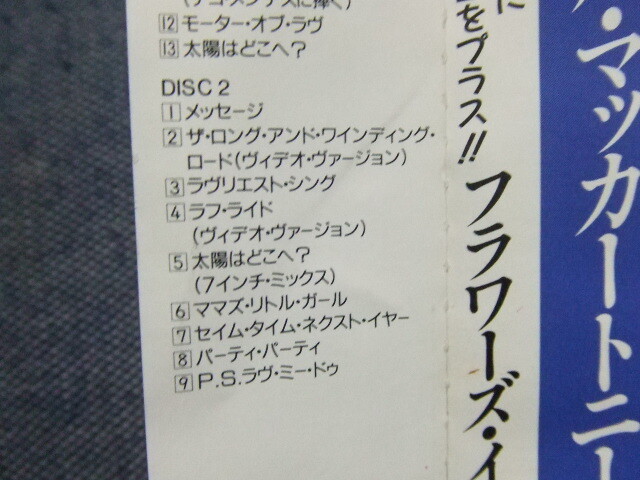 12 モーター・オブ・ラヴ
13 太陽はどこへ?
DISC 2
1 メッセージ
2 ザ・ロング・アンド・ワインディング・
ロード(ヴィデオ・ヴァージョン)
3 ラヴリエスト・シング
4 ラフ・ライド
(ヴィデオ・ヴァージョン)
5 太陽はどこへ?
(7インチ・ミックス)
6 ママズ・リトル・ガール
7 セイム・タイム・ネクスト・イヤー
8 パーティ・パーティ
9 P.S.ラヴ・ミー・ドゥ
に
をプラス!!
フラワーズ・イ
・マッカートニー